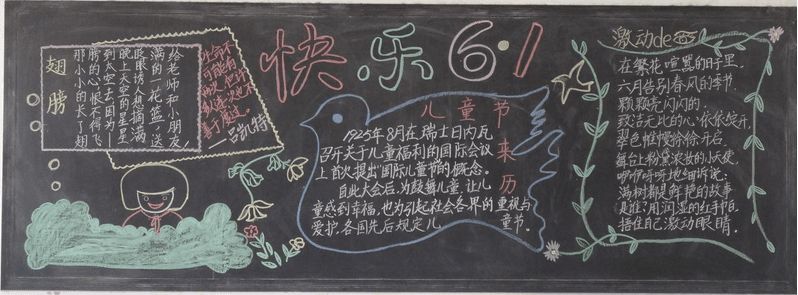 快乐6·1
翅膀
那小小的长了翅
膀的心，恨不得飞
到太空去因为—
晚上天空的星星
眨眼诱人想摘满
满的一花篮，送
给老师和小朋友，
生命不
可能有
两次，
善于度过。
—吕凯特
儿童节来历
1925年8月在瑞士日内瓦
召开关于儿童福利的国际会议
上首次提出国际儿童节的概念。
自此大会后，为鼓舞儿童，让儿
童感到幸福，也为引起社会各界的重视与
爱护，各国先后规定儿童节。
激动de
在繁花喧嚣的日子里，
六月告别春风的季节
颗颗亮闪闪的，
致洁无比的心，依依绽开，
翠色帷幔徐徐开启
舞台上粉黛浓妆的小天使，
咿咿呀呀地细诉说：
满树都是鲜艳的故事
是谁：用润湿的红手帕
捂住自己激动眼睛。